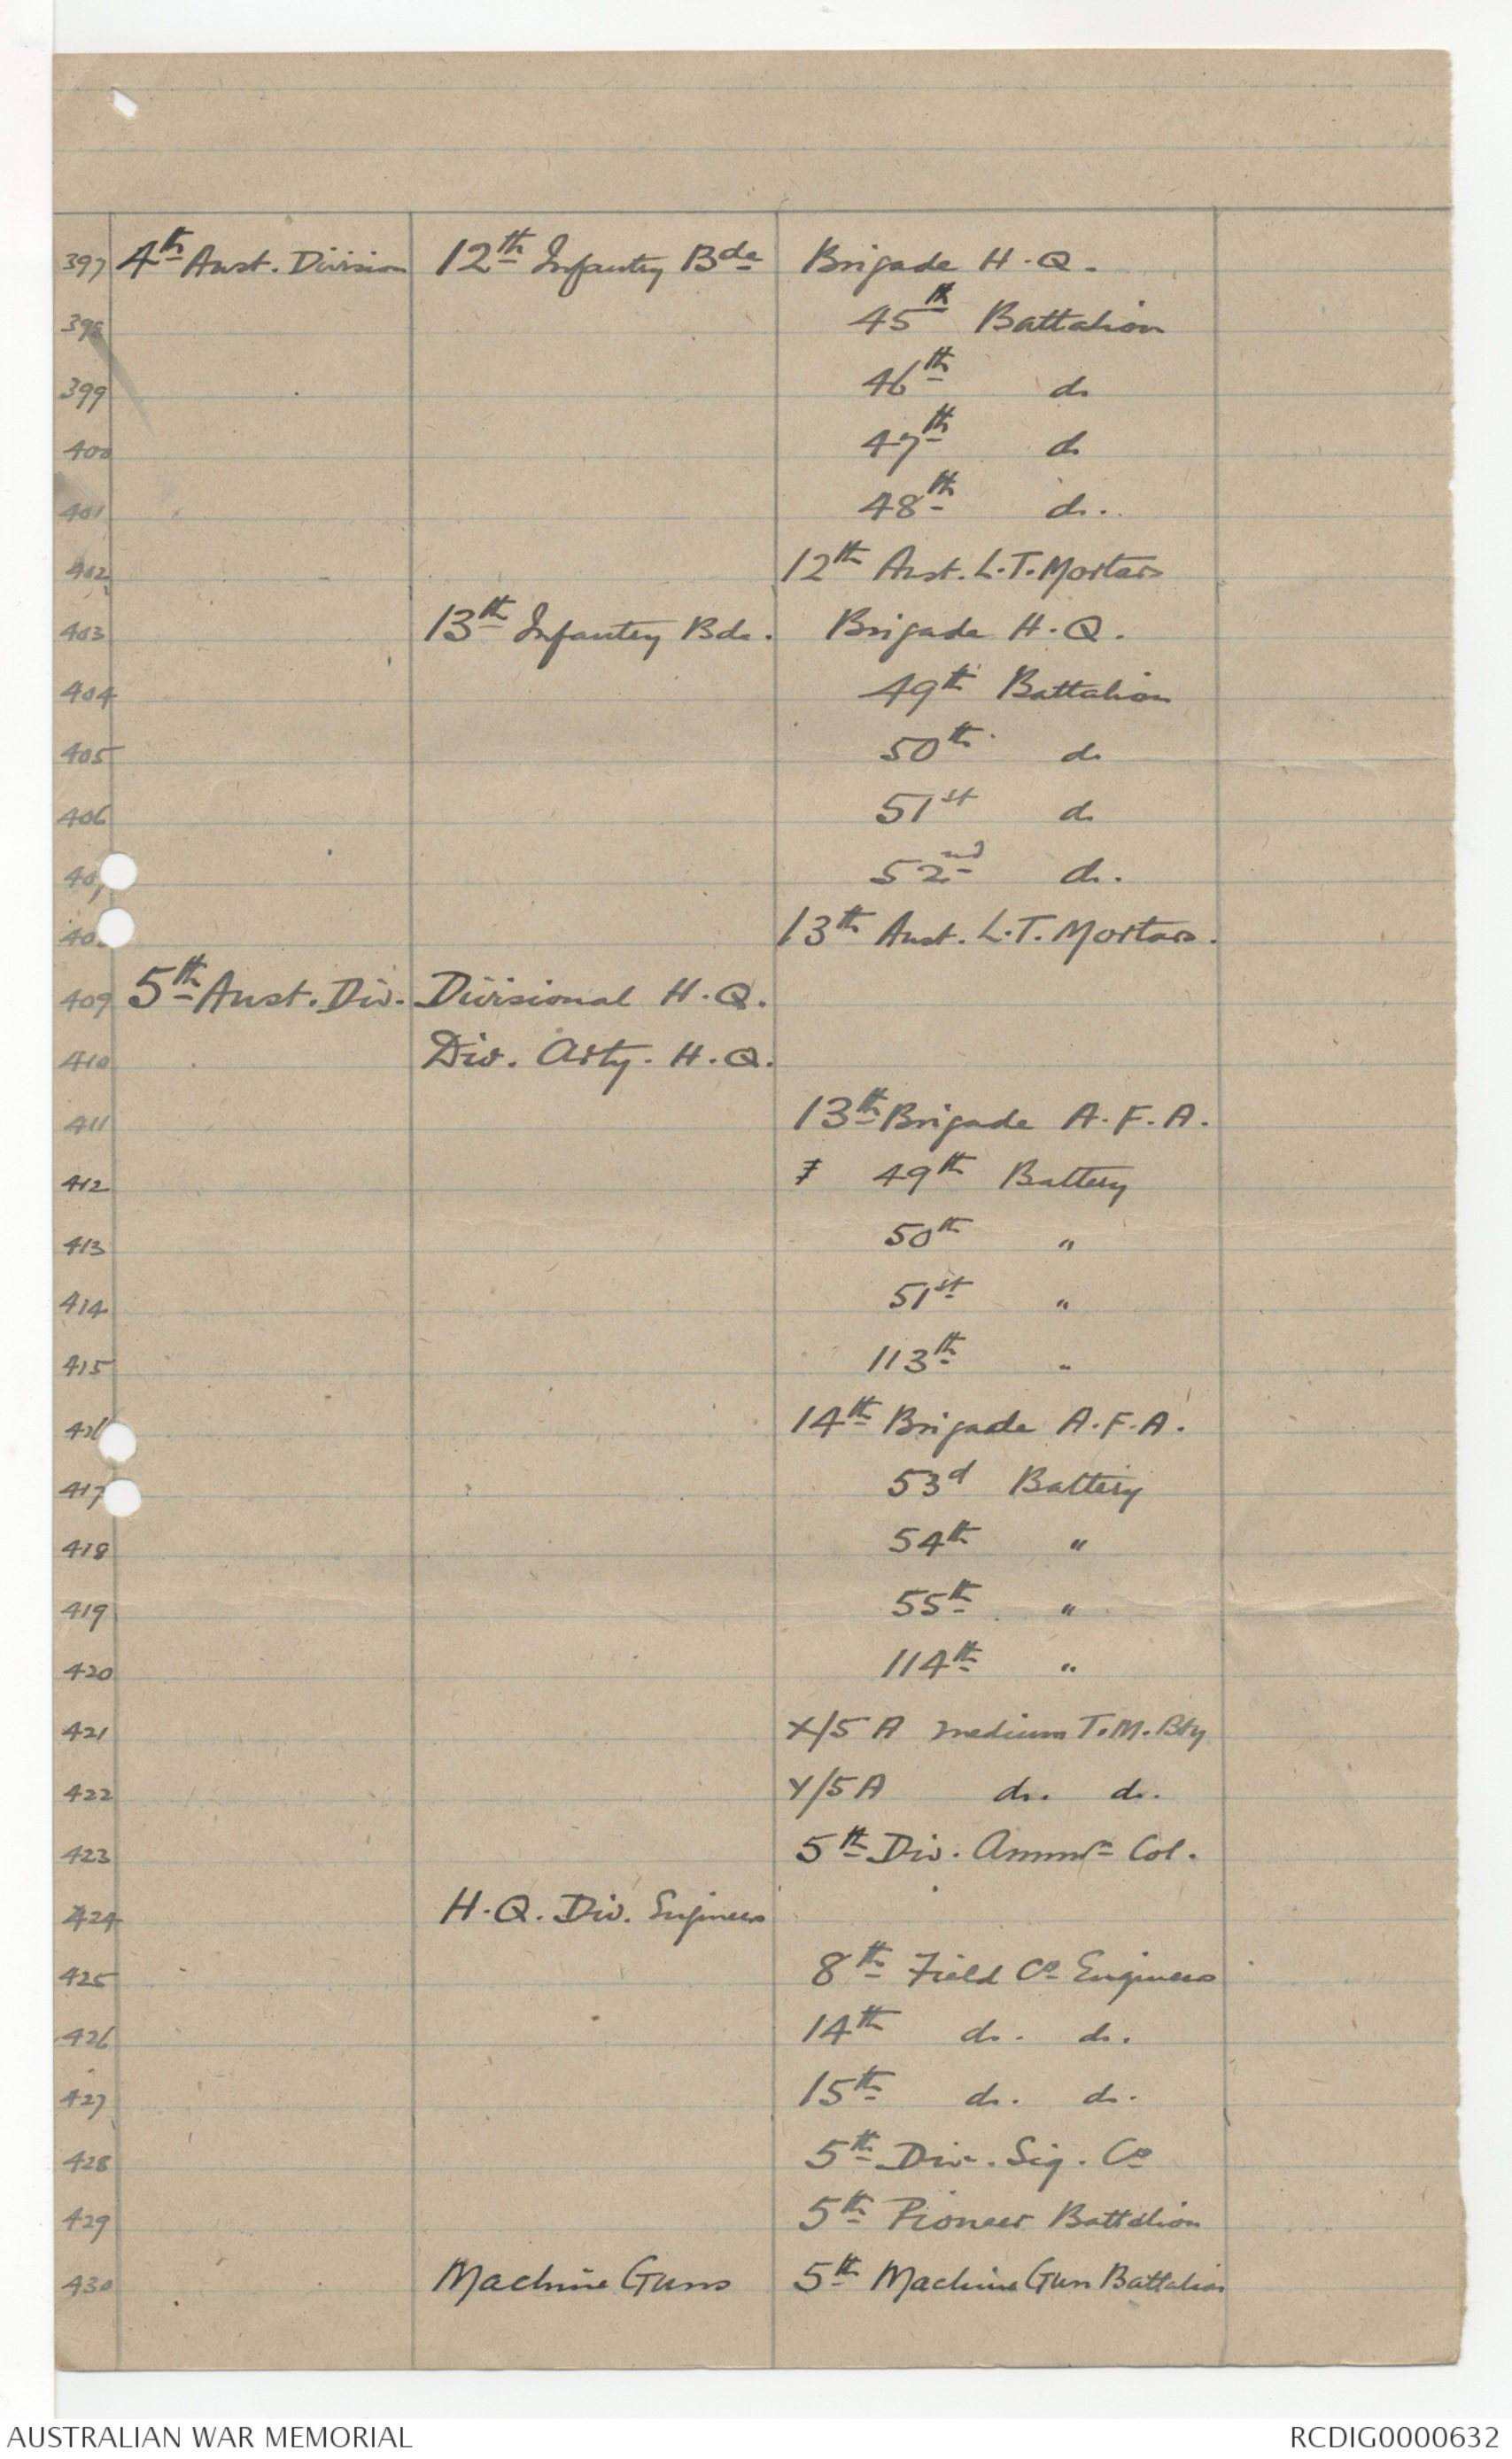 397 4th Aust. Division 12th Infantry Bde Brigade H.Q.
398 45th Battalion
399 46th do
400 47th do
401 48th do.
402 12th Aust. L.T. Mortars
403 13th Infantry Bde. Brigade H.Q.
404 49th Battalion
405 50th do
406 51st do
407 52nd do.
40 13th Aust. L.T. Mortars.
409 5th Aust. Div. Divisional H.Q.
410 Div. Arty. H.Q.
411 13th Brigade A.F.A.
412 49th Battery
413 50th "
414 51st "
415 113th "
416 14th Brigade A.F.A.
417 53d Battery
418 54th "
419 55th "
420 114th "
421 X/5 A medium T.M. Bty
422 Y/5 A do. do.
423 5th Div. Ammn Col.
424 H.Q. Div. Engineers
425 8th Field Co Engineers
426 14th do. do.
427 15th do. do.
428 5th Div. Sig. Co
429 5th Pioneer Battalion
430 Machine Guns 5th Machine Gun Battalion
AUSTRALIAN WAR MEMORIAL RCDIG0000632